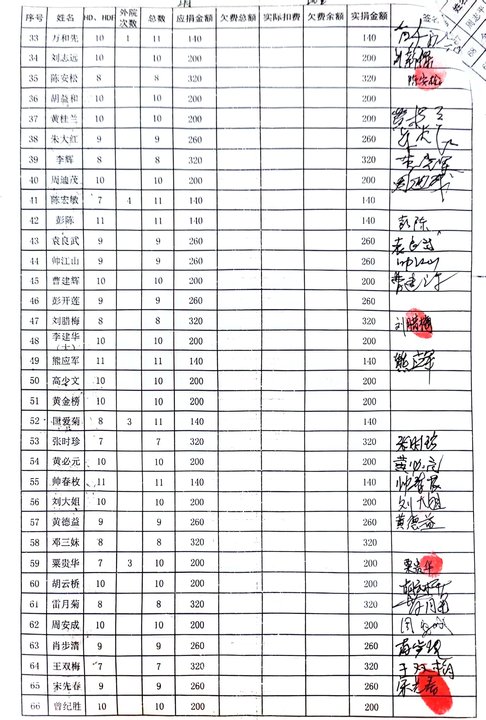 序号 姓名 HD、HDF 外院次数 总数 应捐金额 欠费总额 实际扣费 欠费余额 实捐金额
33 万和先 10 1 11 140 140
34 刘志远 10 10 200 200
35 陈安松 8 8 320 320
36 胡益和 10 10 200 200
37 黄桂兰 10 10 200 200
38 朱大红 9 9 260 260
39 李辉 8 8 320 320 李辉
40 周迪茂 10 10 200 200
41 陈宏敏 7 4 11 140 140
42 彭陈 11 11 140 140 彭陈
43 袁良武 9 9 260 260 袁良武
44 帅江山 9 9 260 260 帅江山
45 曹建辉 10 10 200 200
46 彭开莲 9 9 260 260
47 刘腊梅 8 8 320 320 刘腊梅
48 李建华（大） 10 10 200 200
49 熊应军 11 11 140 140 熊应军
50 高少文 10 10 200 200
51 黄金榜 10 10 200 200
52 爱菊 8 3 11 140 140
53 张时珍 7 7 320 320 张时珍
54 黄必元 10 10 200 200 黄必元
55 帅春枚 11 11 140 140
56 刘大姐 10 10 200 200 刘大姐
57 黄德益 9 9 260 260 黄德益
58 邓三妹 8 8 320 320
59 粟贵华 7 3 10 200 200 粟贵华
60 胡云桥 10 10 200 200
61 雷月菊 8 8 320 320
62 周安成 10 10 200 200
63 肖步清 9 9 260 260
64 王双梅 7 7 320 320
65 宋先春 9 9 260 260
66 曾纪胜 10 10 200 200